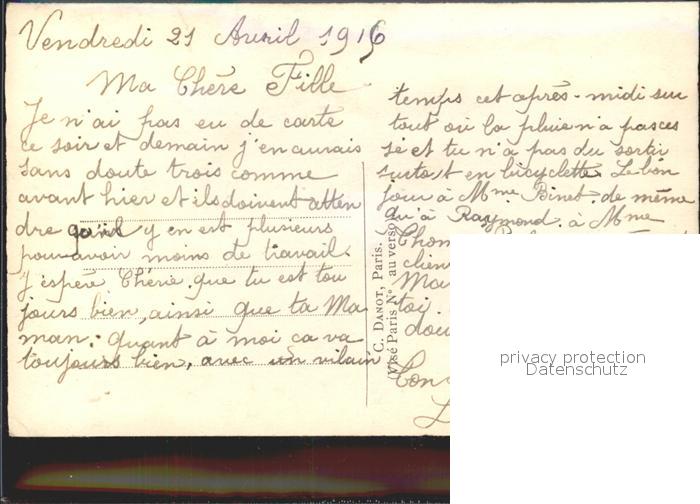 Vendredi 21 Avril 1916
Ma Chère Fille
Je n'ai pas eu de carte
ce soir et demain j'en aurais
sans doute trois comme
avant hier et ils doivent atten
dre qu'il y en est plusieurs
pour avoir moins de travail.
J'espère Chérie que tu est tou
jours bien, ainsi que ta Ma
man. quant à moi ca va
toujours bien, avec un vilain
temps cet après-midi sur
tout où la pluie n'a pas ces
sé et tu n'a pas du sortir
surtout en bicyclette. Le bon
jour à Mme Binet. de même
qu'à Raymond. à Mme
Chom
clien
Ma
toi.
dou
C. DANOT, Paris.
(Visé Paris No. au verso)
privacy protection
Datenschutz